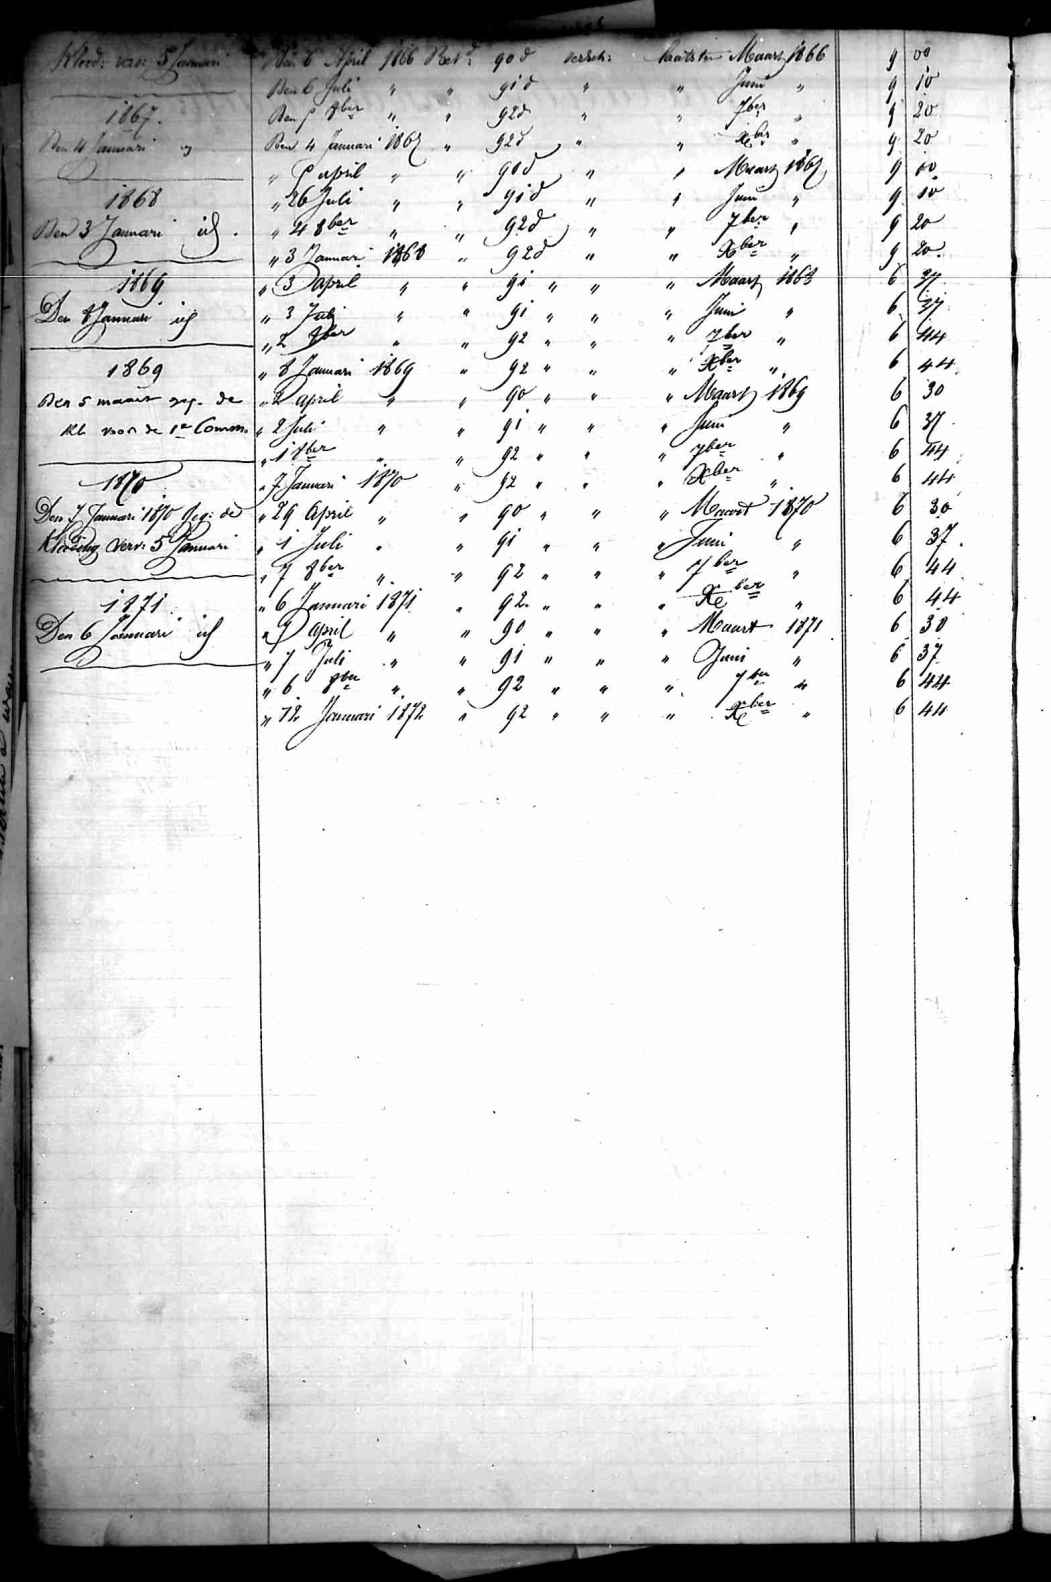 Kleed: ver: 5 Januari
1867.
Den 4 Januari
1868
Den 3 Januari id.
1869
Den 8 Januari id
1869
Den 5 maart de
Kl voor de 1e Comm.
1870
Den 7 Januari 1870 de
Kleeding Verv: 5 Januari
1871.
Den 6 Januari id
Den 6 April 1866 Bet: 90 d Maart 1866 9 00
Den 6 Juli " " 91 d " " Juni " 9 10
Den 5 8ber " " 92d " " 7ber " 9 20
Den 4 Januari 1867 " 92d " " Xber " 9 20
" 5 april " " 90d " " Maart 1867 9 00
" 26 Juli " " 91d " " Juni " 9 10
" 4 8ber " " 92d " " 7ber " 9 20
" 3 Januari 1868 " 92d " " Xber " 9 20.
" 3 april " " 91 " " " Maart 1868 6 37
" 3 Juli " " 91 " " " Juni " 6 37
" 2 8ber " " 92 " " " 7ber " 6 44
" 8 Januari 1869 " 92 " " " Xber " 6 44
" 2 april " " 90 " " " Maart 1869 6 30
" 2 Juli " " 91 " " " Juni " 6 37
" 1 8ber " " 92 " " " 7ber " 6 44
" 7 Januari 1870 " 92 " " " Xber " 6 44
" 29 April " " 90 " " " Maart 1870 6 30
" 1 Juli " " 91 " " " Juni " 6 37.
" 7 8ber " " 92 " " " 7ber " 6 44
" 6 Januari 1871 " 92 " " " Xber " 6 44
" 7 April " " 90 " " " Maart 1871 6 30
" 7 Juli " " 91 " " " Juni " 6 37
" 6 8ber " " 92 " " " 7ber " 6 44
" 12 Januari 1872 " 92 " " " Xber " 6 44